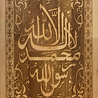 لا إله إلا الله
محمد
رسول الله